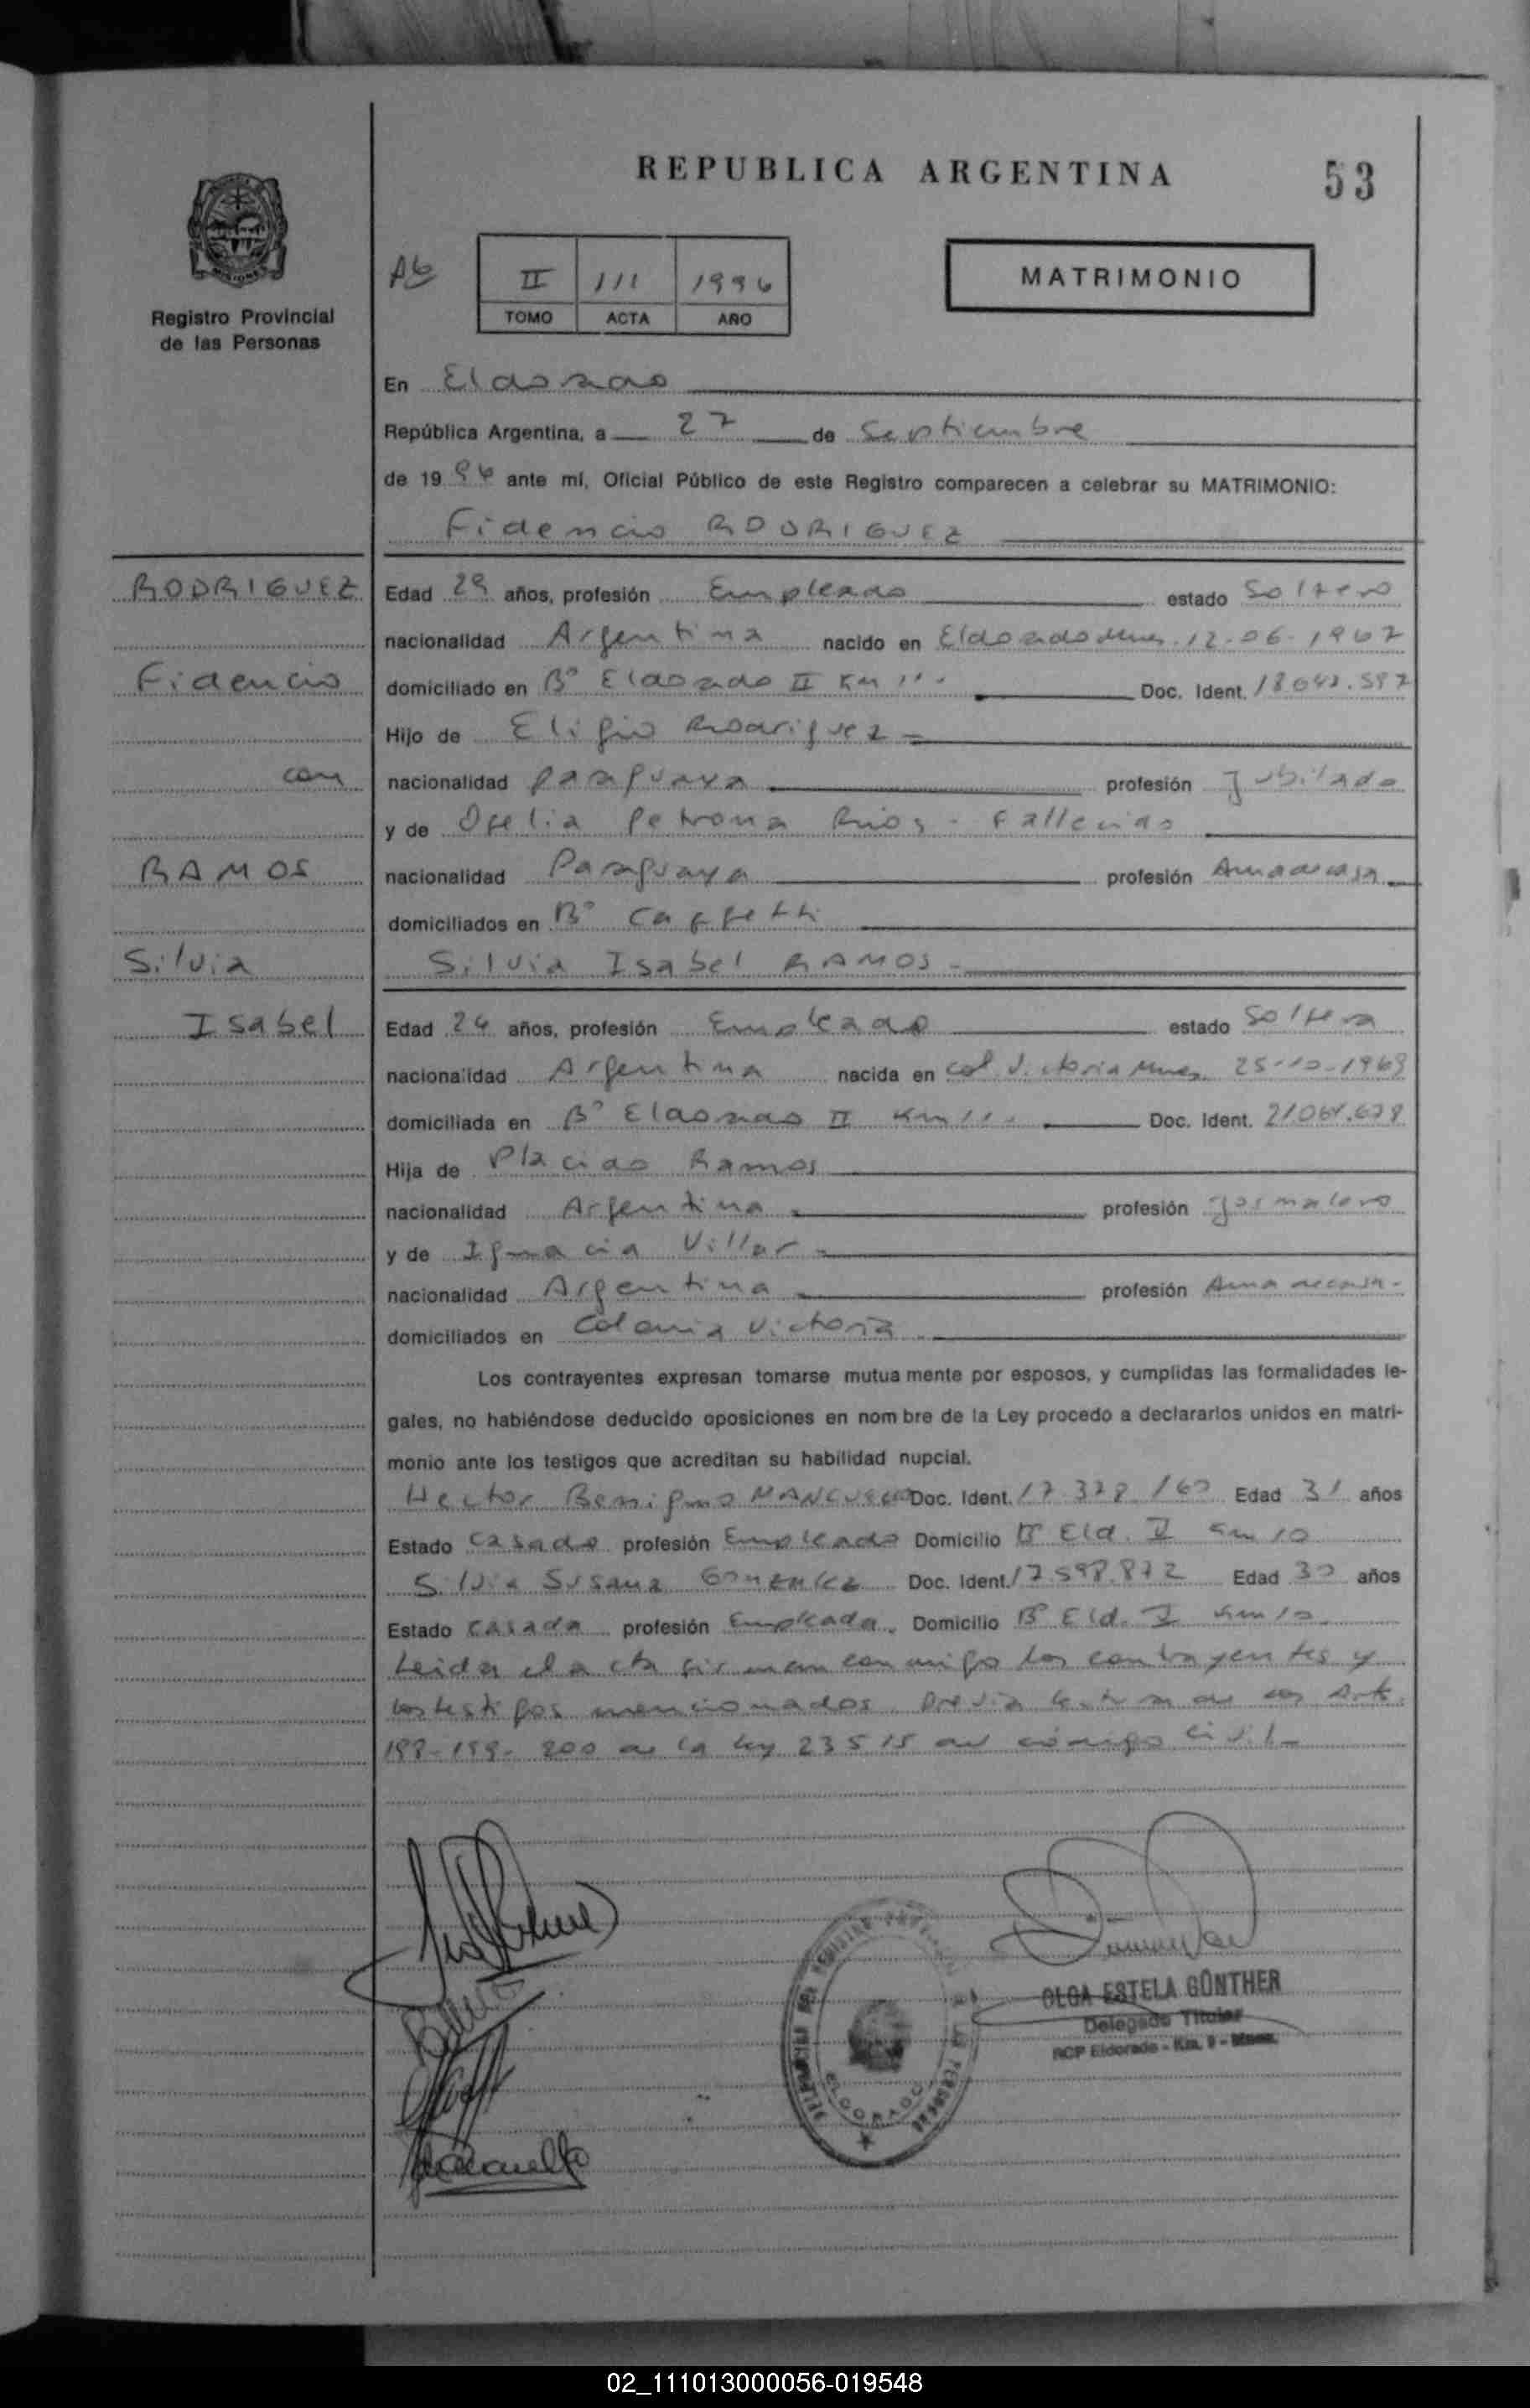 REPUBLICA ARGENTINA
53
II 111 1996
TOMO ACTA AÑO
MATRIMONIO
Registro Provincial
de las Personas
En Eldorado
República Argentina, a 27 de Septiembre
de 1996 ante mí, Oficial Público de este Registro comparecen a celebrar su MATRIMONIO:
Fidencio RODRIGUEZ
RODRIGUEZ
Edad 29 años, profesión Empleado estado Soltero
nacionalidad Argentina nacido en Eldorado Mnes. 12-06-1967
Fidencio
domiciliado en B° Eldorado II Km 11. Doc. Ident.
Hijo de Eligio Rodriguez
con
nacionalidad paraguaya profesión Jubilado
y de Ofelia Petrona Rios - Fallecida
RAMOS
nacionalidad Paraguaya profesión Ama de casa
domiciliados en B°
Silvia
Silvia Isabel RAMOS -
Isabel
Edad 26 años, profesión Empleada estado Soltera
nacionalidad Argentina nacida en Col. Victoria Mnes. 25-10-1969
domiciliada en B° Eldorado II Km 11. Doc. Ident.
Hija de Placido Ramos
nacionalidad Argentina profesión jornalero
y de Ignacia Villar
nacionalidad Argentina profesión Ama de casa-
domiciliados en Colonia Victoria
Los contrayentes expresan tomarse mutua mente por esposos, y cumplidas las formalidades le-
gales, no habiéndose deducido oposiciones en nom bre de la Ley procedo a declararlos unidos en matri-
monio ante los testigos que acreditan su habilidad nupcial.
Hector Benigno Doc. Ident. 17.328.160 Edad 31 años
Estado Casado profesión Empleado Domicilio B° Eld. I Km 10
Silvia Susana Doc. Ident. 17.598.872 Edad 30 años
Estado Casada profesión Empleada Domicilio B° Eld. I Km 10
Leida el acta firman conmigo los contrayentes y
los testigos mencionados previa lectura de los Arts.
198-199-200 de la ley 23515 del código Civil-
OLGA ESTELA GÜNTHER
Delegado Titular
RCP Eldorado - Km. 9 - Mnes.
ELDORADO
02_111013000056-019548